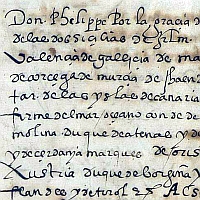 Don Phelippe Por la gracia d
de las dos Sicilias de Jrlm
Valençia de galizia de ma
de corcega de murcia de Jhaen
tar de las yslas de canaria
firme del mar oçeano con de de
molina duque de atenas y de
y de cerdania marques de oris
Austria duque de borgoña y
flandes y de tirol